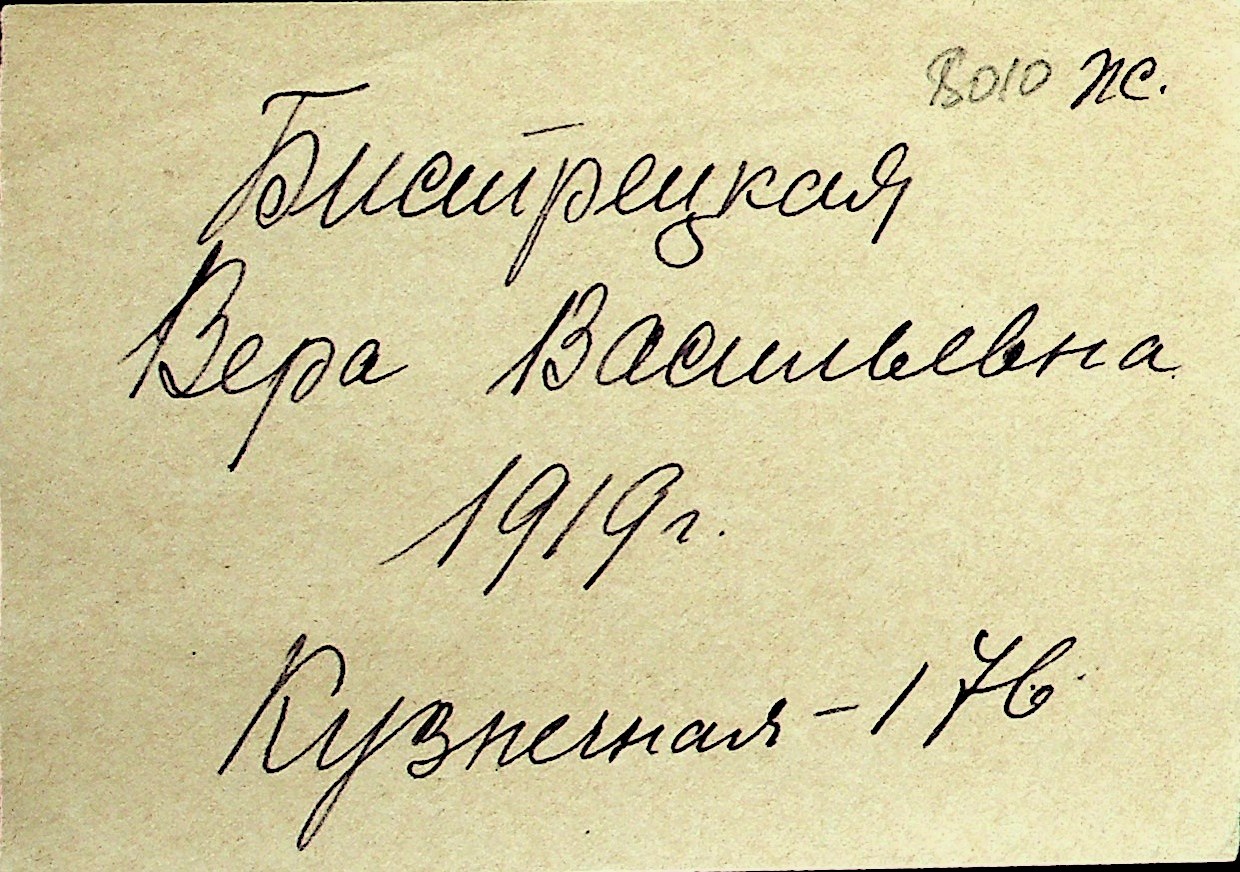 В010 ж.
Бистрецкая
Вера Васильевна
1919 г.
Кузнечная - 17б